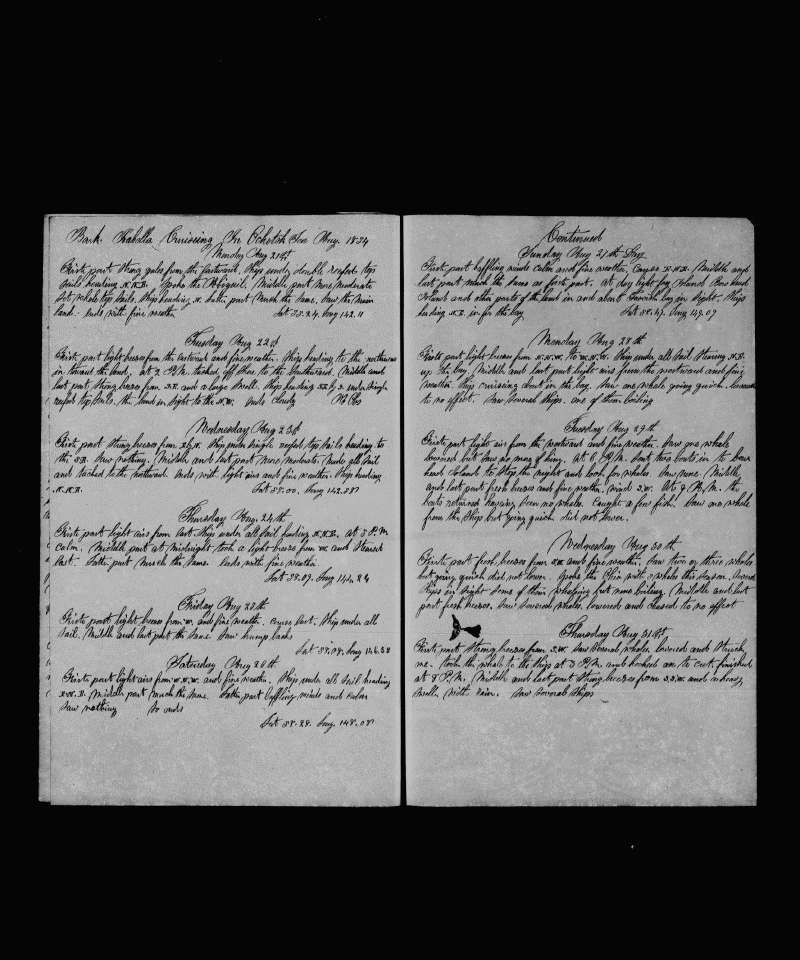 Bark Isabella Cruising In Ochotsk Sea Aug. 1854
Monday Aug 21st
First part strong gales from the Eastward. Ship under double reefed top
sails heading N.N.E. Spoke the Abigail. Middle part more moderate
Set whole top sails. Ship heading N. Latter part Much the Same. Saw the Main
land. Ends with fine weather Lat 55.24. Long 142.11
Tuesday Aug 22d
First part light breeses from the eastward and fine weather. Ship heading to the northward
in toward the land, at 2 P.M. tacked off Shore to the Southward. Middle and
last part Strong breeses from and a large Swell. Ship heading under Single
reefed top Sails. the land in Sight to the N.W. ends cloudy No Obs
Wednesday Aug 23d
First part Strong breeses from Ship under Single reefed top Sails heading to
the Saw nothing. Middle and last part More Moderate. Made all Sail
and tacked to the northward. Ends with light airs and fine weather. Ship heading
N.N.E. Lat 58.00. Long 142.58
Thursday Aug. 24th
First part light airs from East. Ship under all Sail heading N.N.E. at 8 P.M
calm. Middle part at midnight took a light breese from W. and Steered
East. Latter part Much the Same. Ends with fine weather.
Lat 58.09. Long 144.24
Friday Aug 25th
First part light breeses from W. and fine weather. course East. Ship under all
Sail. Middle and last part the Same. Saw hump backs
Lat 58.08. Long 146.58
Saturday Aug 26th
First part light airs from W.N.W. and fine weather. Ship under all Sail heading
Middle part Much the Same. Latter part baffling winds and calm
Saw nothing So ends
Lat 58.28. Long. 148.08
Continued
Sunday Aug 27th Day
First part baffling winds calm and fine weather. Course Middle and
last part much the Same as forts part. At day light fog Island Cone head
Island and other parts of the land in and about bay in Sight. Ship
heading N.E. in for the bay Lat 58.47. Long 149.07
Monday Aug 28th
First part light breeses from to W.N.W. Ship under all Sail Steering N.E.
up the bay. Middle and last part light airs from the westward and fine
weather. Ship cruising about in the bay. Saw one whale going quick. lowered
to no effect. Saw Several Ships. one of them boiling
Tuesday Aug 29th
First part light airs from the westward and fine weather. Saw one whale
lowered but Saw no more of him. At 6 P.M. Sent two boats in to Cone
head Island to Stop the night and look for whales. Saw none. Middle
and last part fresh breeses and fine weather. wind S.W. At 9 A.M. the
boats returned having Seen no whales. Caught a few fish. Saw one whale
from the Ship but going quick did not lower.
Wednesday Aug 30th
First part fresh breeses from S.W. and fine weather. Saw two or three whales
but going quick did not lower. Spoke the Cleo with whales this Season. Several
Ships in Sight Some of them whaleing but none boiling. Middle and last
part fresh breeses. Saw Several whales. lowered and chased to no effect
Thursday Aug 31st
First part Strong breeses from S.W. Saw Several whales. lowered and Struck
one. took the whale to the Ship at 3 P.M. and hooked on to cut. finished
at 8 P.M. Middle and last part Strong breeses from S.S.W. and a heavy
Swell. With rain. Saw Several Ships